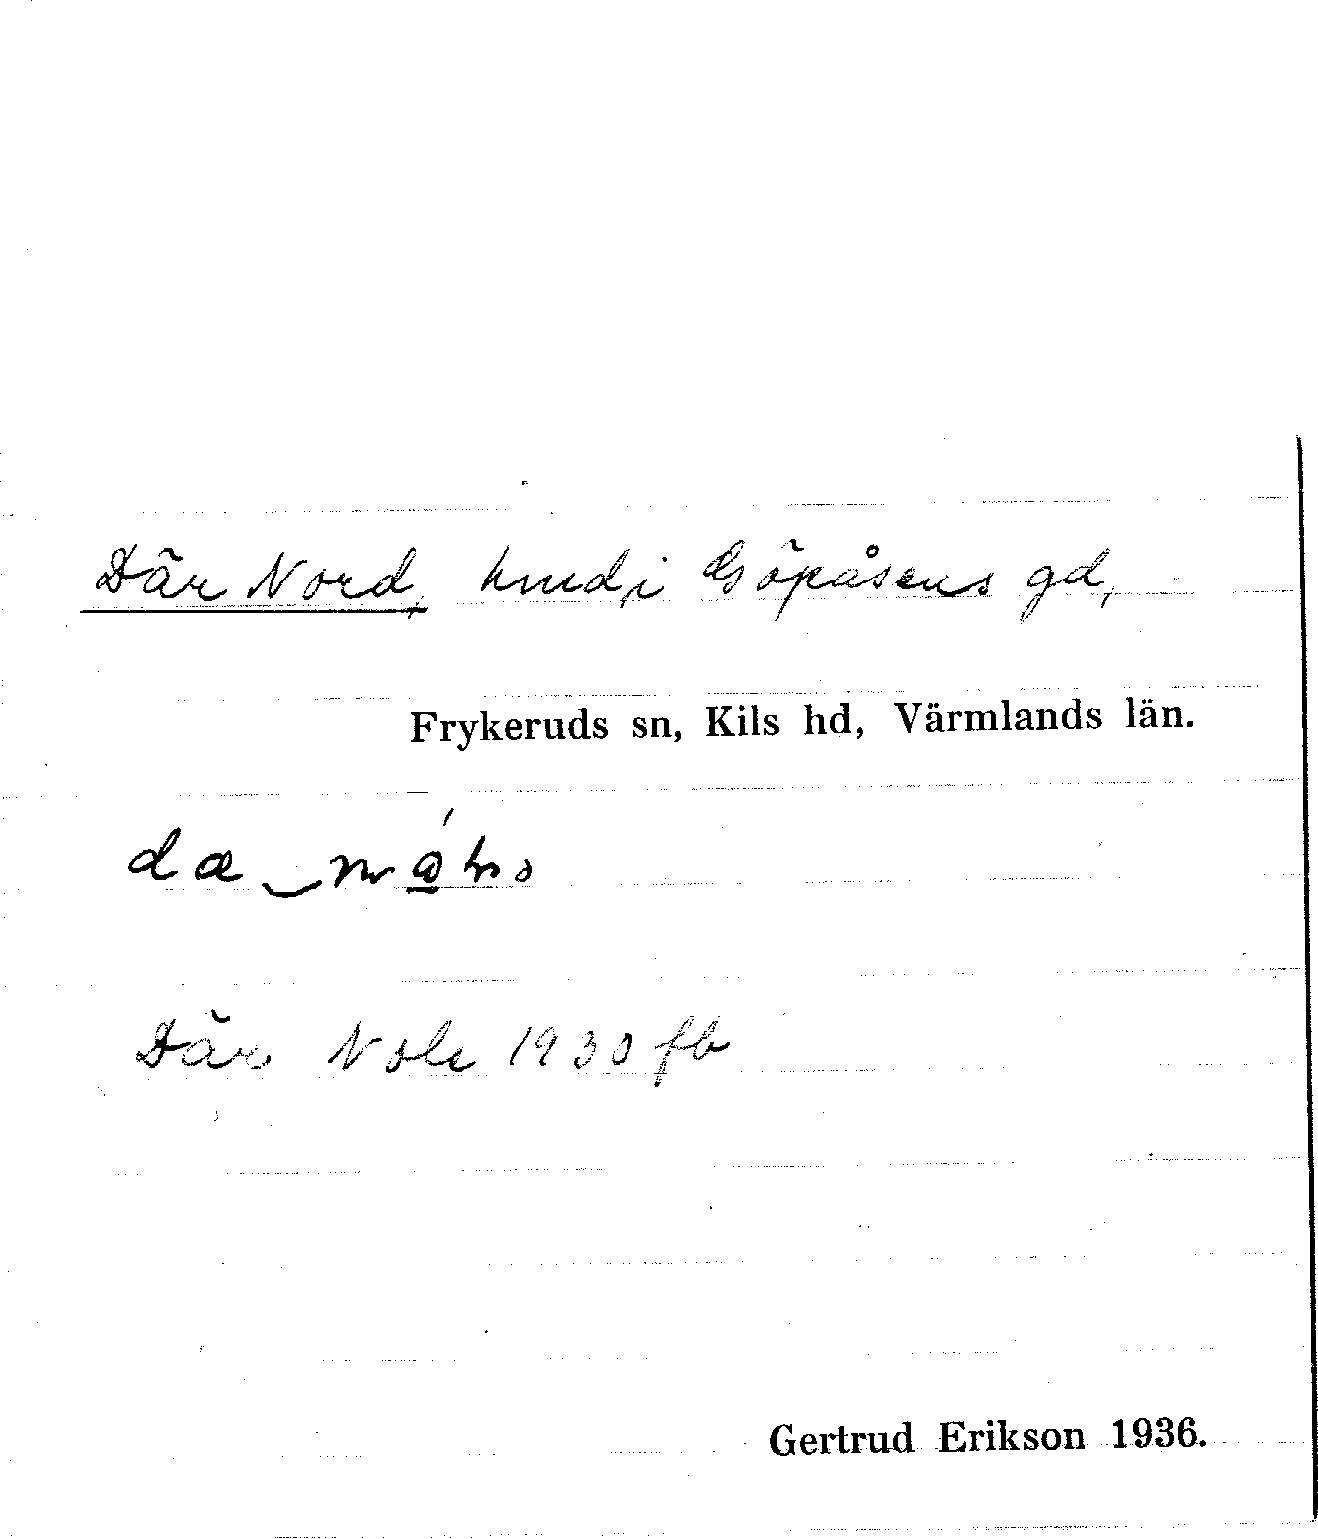 Där Nord, hmd, i Göpåsens gd,
Frykeruds sn, Kils hd, Värmlands län.
Där Nole 1930 fb
Gertrud Erikson 1936.